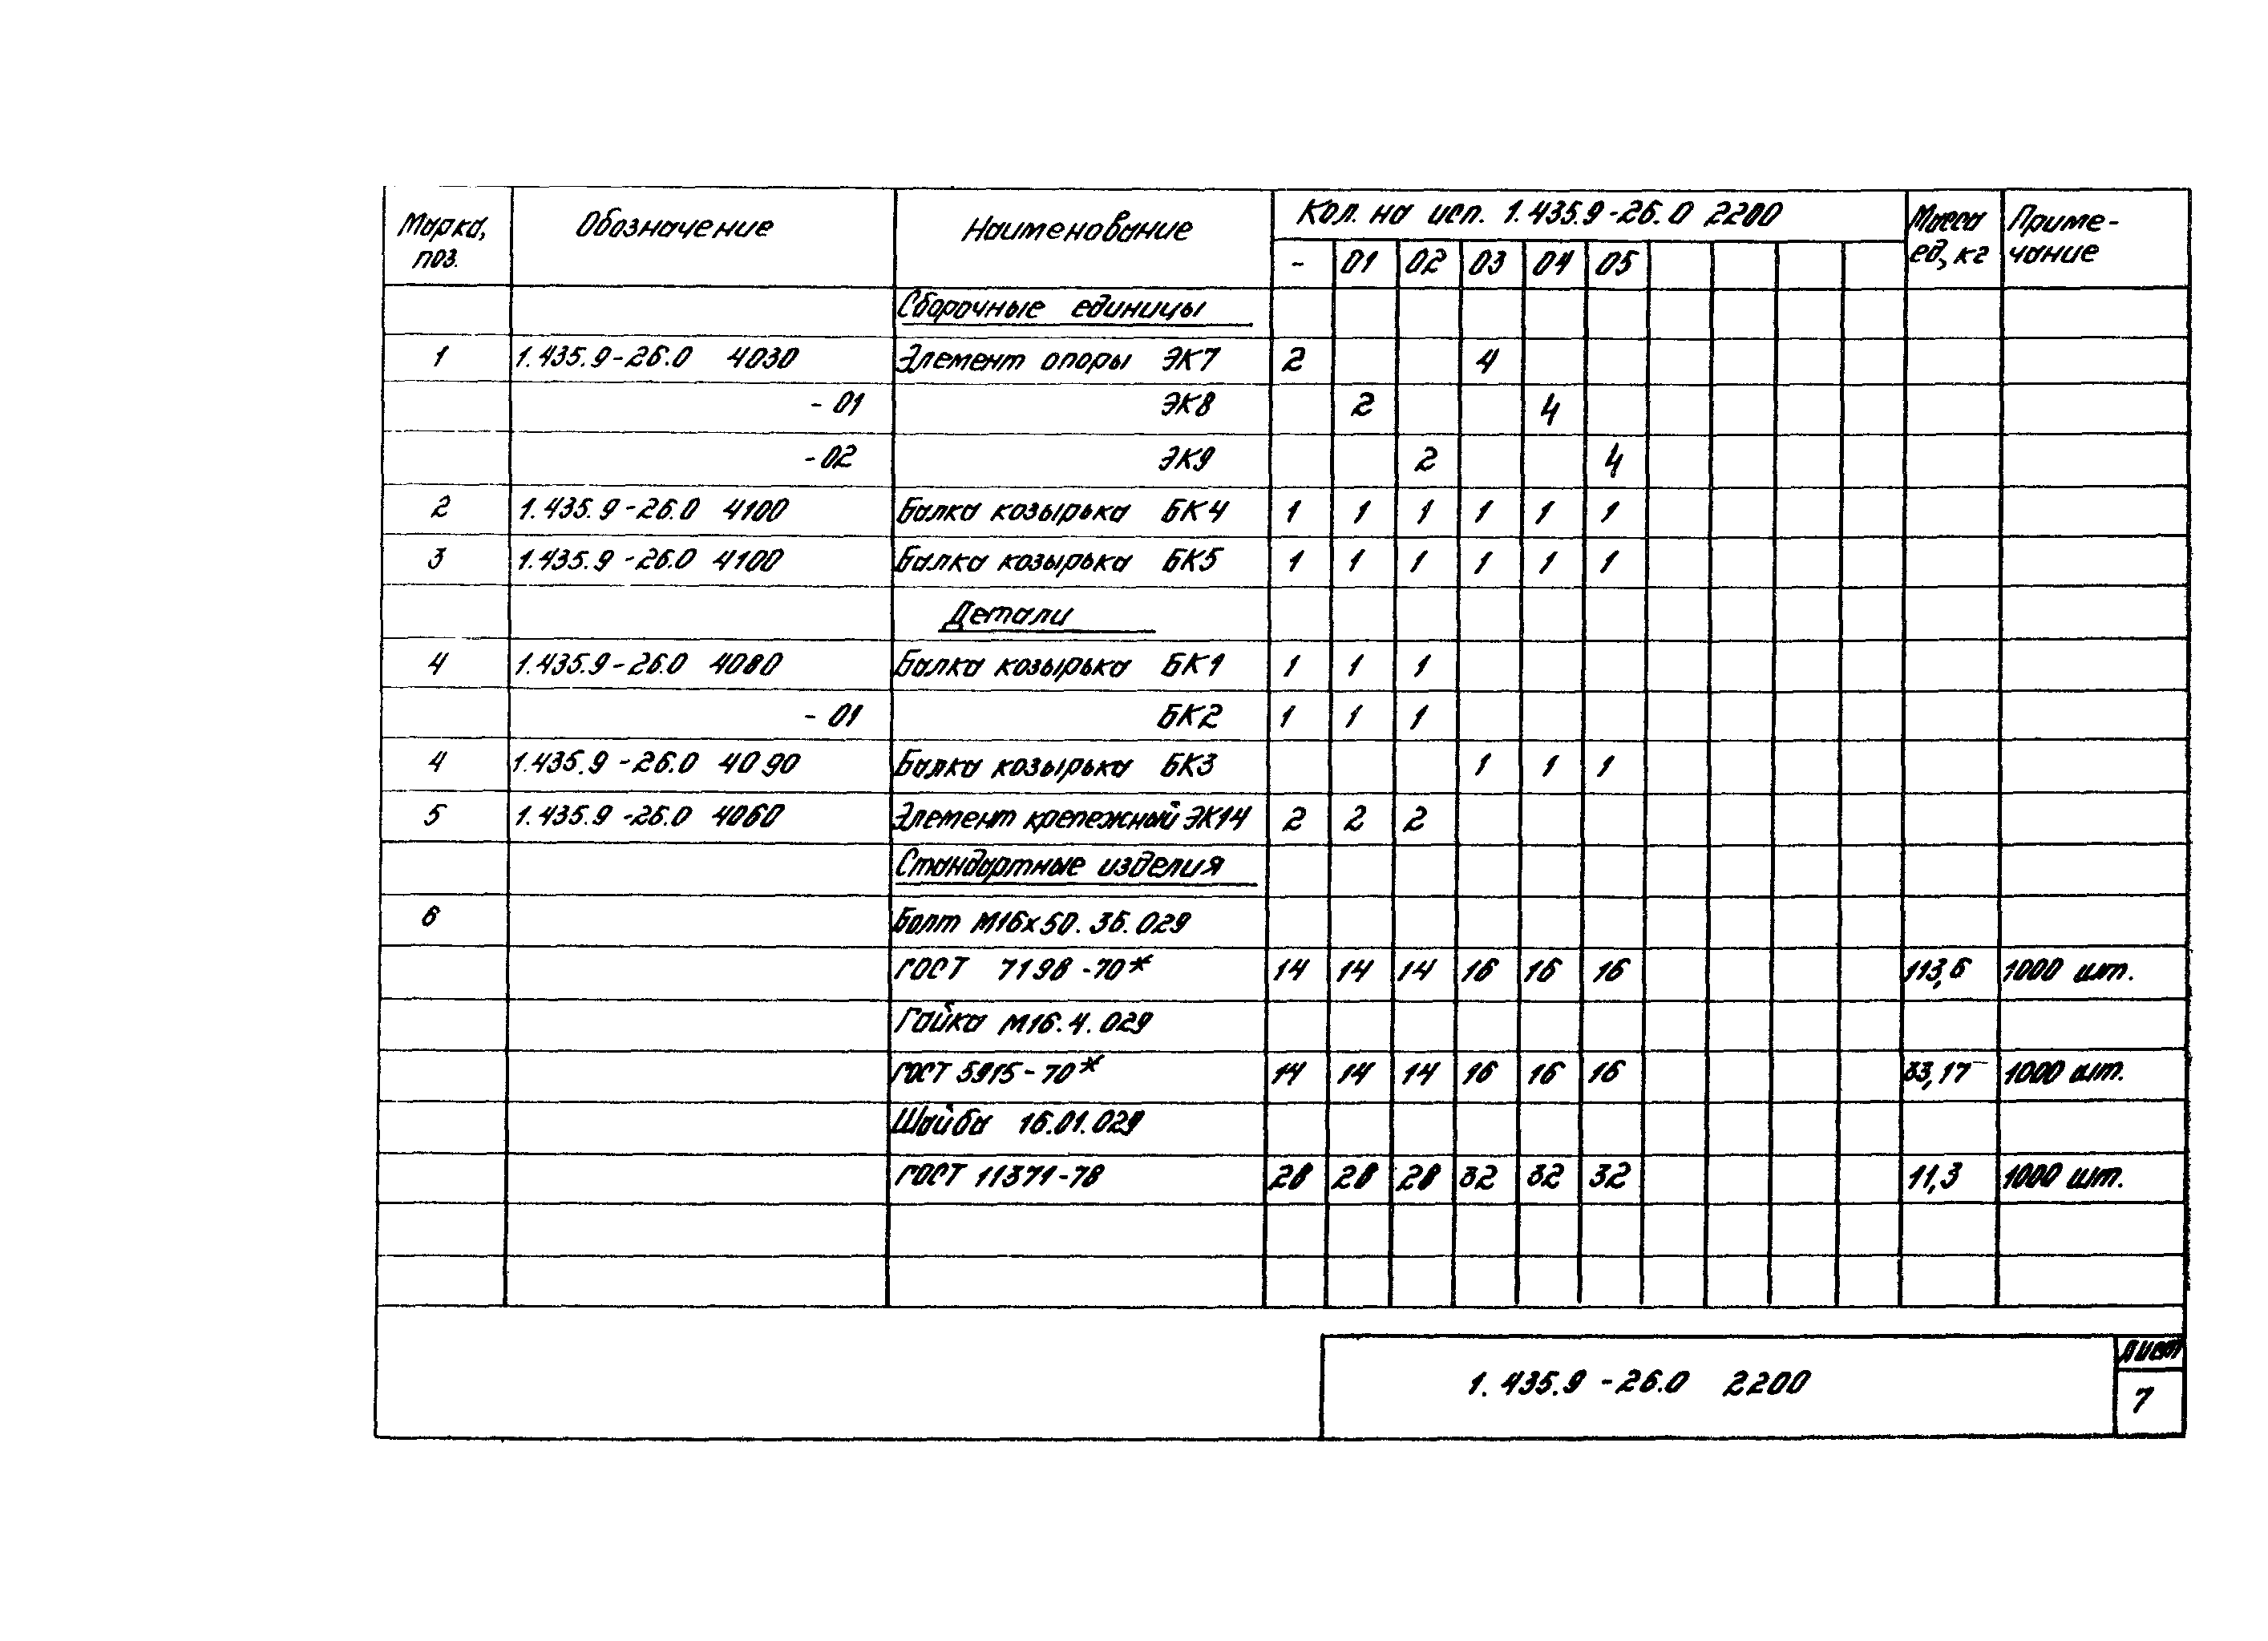 Марка, поз. Обозначение Наименование Кол. на исп. 1.435.9-26.0 2200 Масса ед, кг Приме-чание
- 01 02 03 04 05
Сборочные единицы
1 1.435.9-26.0 4030 Элемент опоры ЭК7 2 4
-01 ЭК8 2 4
-02 ЭК9 2 4
2 1.435.9-26.0 4100 Балка козырька БК4 1 1 1 1 1 1
3 1.435.9-26.0 4100 Балка козырька БК5 1 1 1 1 1 1
Детали
4 1.435.9-26.0 4080 Балка козырька БК1 1 1 1
-01 БК2 1 1 1
4 1.435.9-26.0 4090 Балка козырька БК3 1 1 1
5 1.435.9-26.0 4060 Элемент крепежный ЭК14 2 2 2
Стандартные изделия
6 Болт М16х50.36.029
ГОСТ 7198-70* 14 14 14 16 16 16 113,6 1000 шт.
Гайка М16.4.029
ГОСТ 5915-70* 14 14 14 16 16 16 33,17 1000 шт.
Шайба 16.01.029
ГОСТ 11371-78 28 28 28 32 32 32 11,3 1000 шт.
1.435.9-26.0 2200
Лист
7